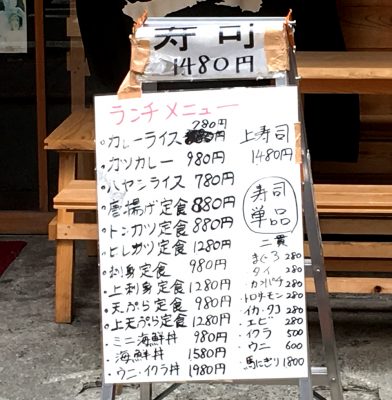 寿司
1480円
ランチメニュー
・カレーライス 780円
・カツカレー 980円
・ハヤシライス 780円
・唐揚げ定食 880円
・トンカツ定食 880円
・ヒレカツ定食 1280円
・刺身定食 980円
・上刺身定食 1280円
・天ぷら定食 980円
・上天ぷら定食 1280円
・ミニ海鮮丼 980円
・海鮮丼 1580円
・ウニ・イクラ丼 1980円
上寿司
1480円
寿司
単品
二貫
・まぐろ 280
・タイ 280
・カンパチ 280
・トロサーモン 280
・イカ・タコ 280
・エビ 280
・イクラ 500
・ウニ 600
・馬にぎり 1800